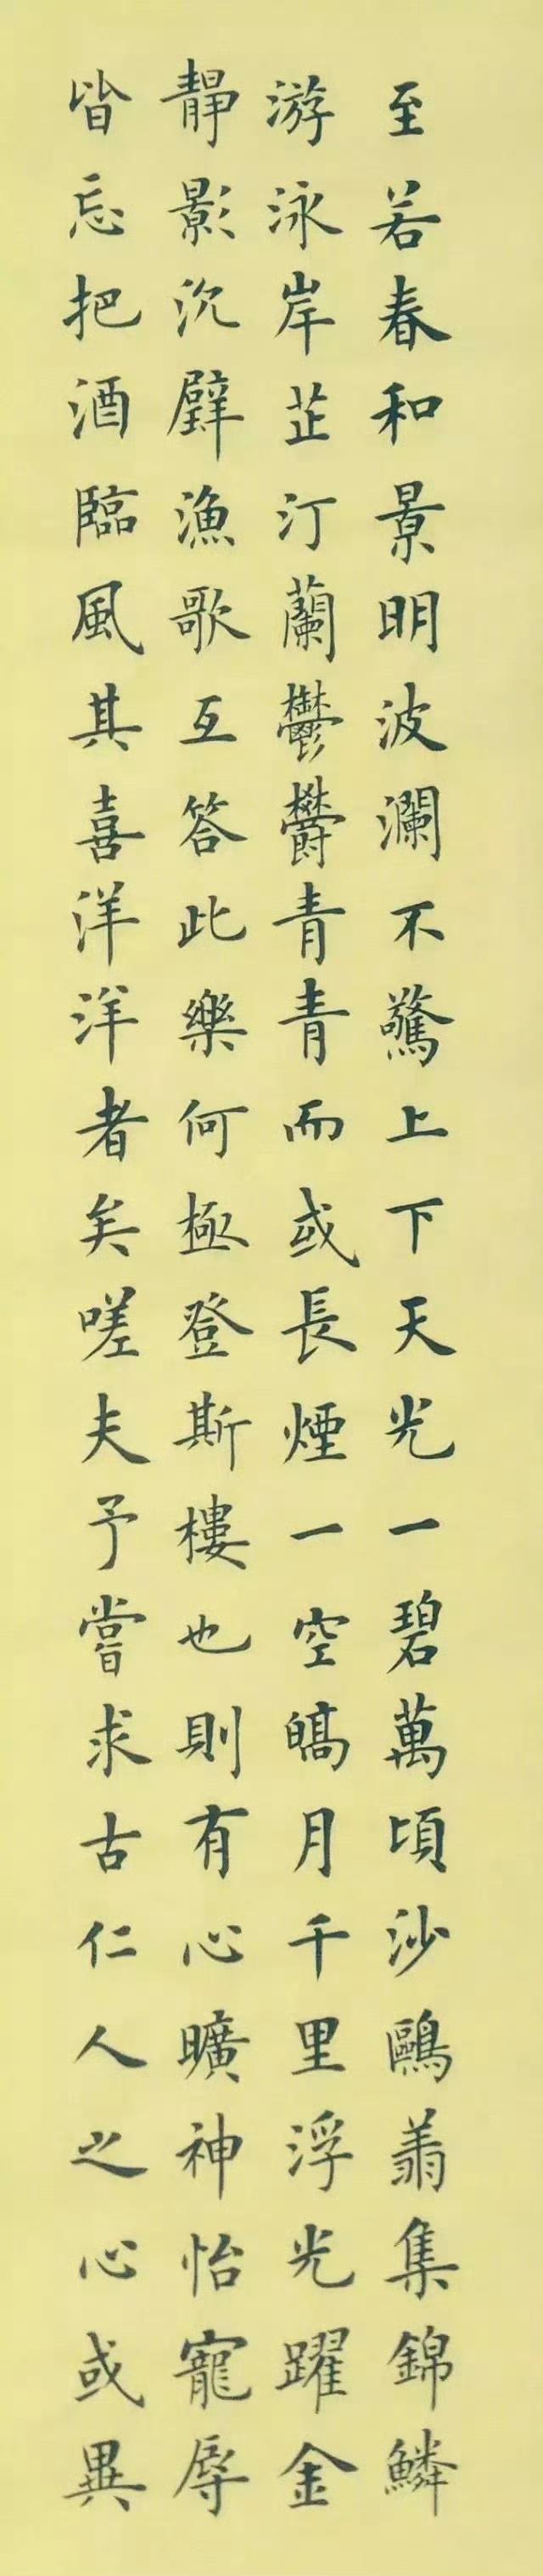 至若春和景明波瀾不驚上下天光一碧萬頃沙鷗翔集錦鱗
游泳岸芷汀蘭鬱鬱青青而或長煙一空皜月千里浮光躍金
靜影沉璧漁歌互答此樂何極登斯樓也則有心曠神怡寵辱
皆忘把酒臨風其喜洋洋者矣嗟夫予嘗求古仁人之心或異